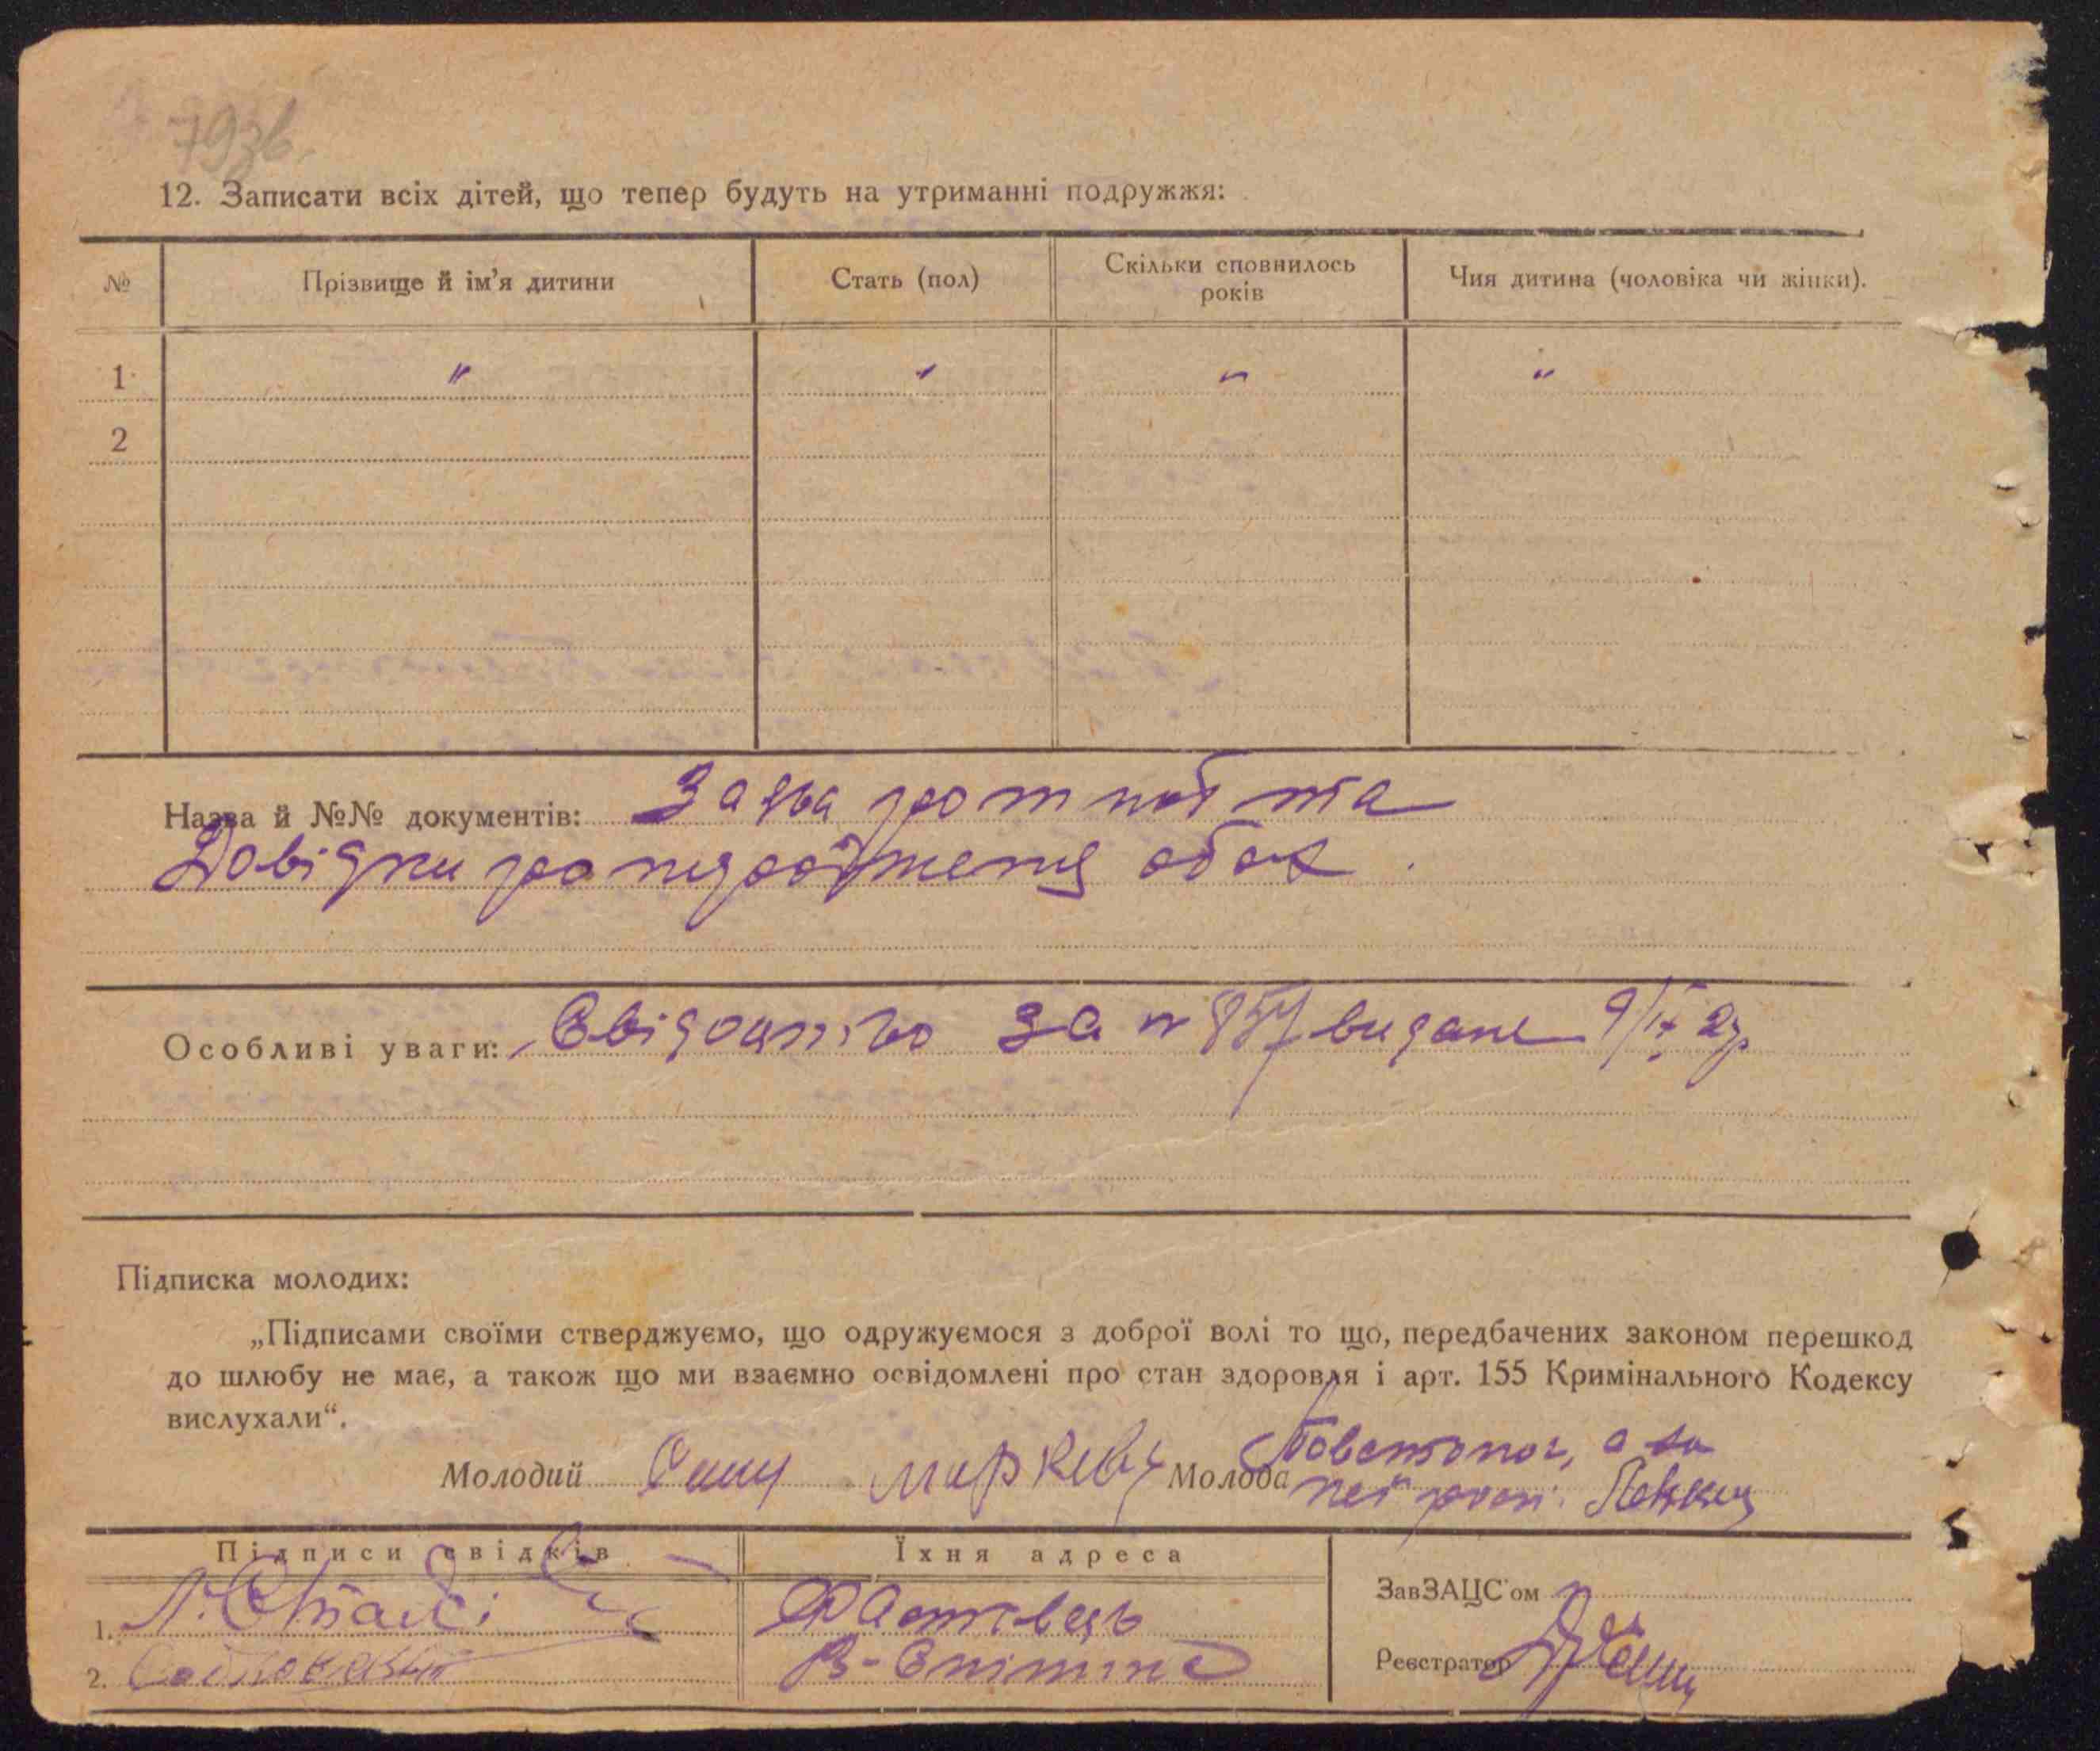 793в.
12. Записати всіх дітей, що тепер будуть на утриманні подружжя:
№ Прізвище й ім'я дитини Стать (пол) Скільки сповнилось років Чия дитина (чоловіка чи жінки).
1 " " " "
2
Назва й №№ документів: Заява гром поб та
Довідки ро народження обох.
Особливі уваги: Свідоцтво за № 857 видане 9/ІХ 2р.
Підписка молодих:
„Підписами своїми стверджуємо, що одружуємося з доброї волі то що, передбачених законом перешкод
до шлюбу не має, а також що ми взаємно освідомлені про стан здоровля і арт. 155 Кримінального Кодексу
вислухали“.
Молодий Молода а за
неї
Підписи свідків Їхня адреса
ЗавЗАЦС'ом
1. Фастовець
2.
Реєстратор